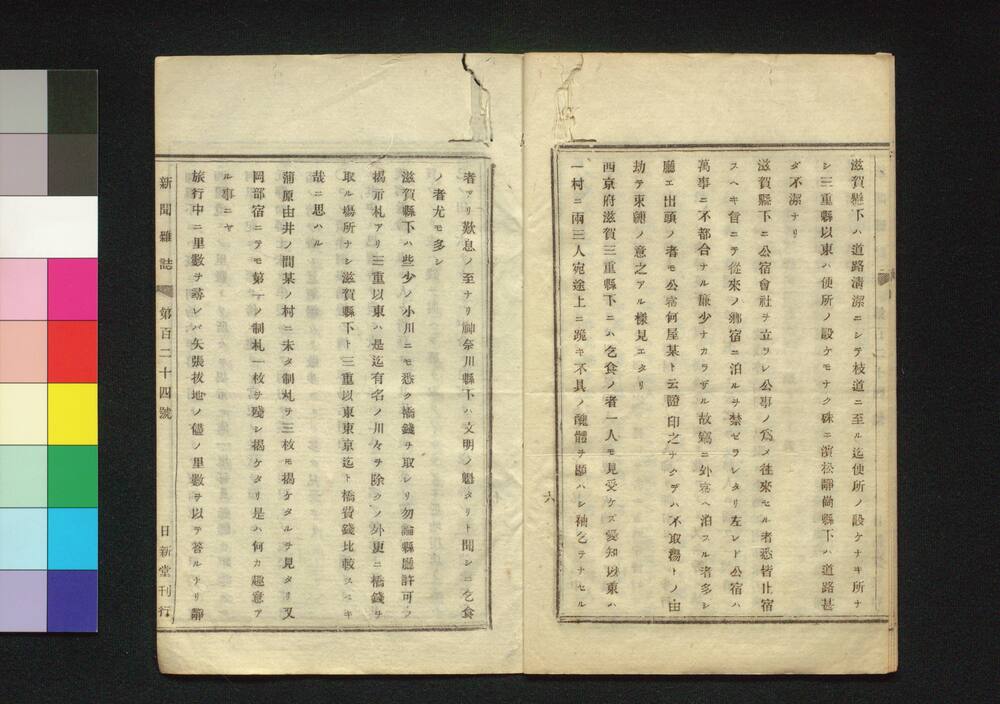 滋賀縣下ハ道路清潔ニシテ枝道ニ至ル迄便所ノ設ケナキ所ナ
シ三重縣以東ハ便所ノ設ケモナク殊ニ濱松靜岡縣下ハ道路甚
ダ不潔ナリ
滋賀縣下ニ公宿會社ヲ立ラレ公事ノ爲メ往來セル者悉皆止宿
スヘキ旨ニテ從來ノ鄕宿ニ泊ルヲ禁ゼラレタリ左レド公宿ハ
萬事ニ不都合ナル廉少ナカラザル故竊ニ外宿ヘ泊スル者多シ
廳エ出頭ノ者モ公宿何屋某ト云證印之ナクテハ不取揚トノ由
劫テ束縛ノ意之アル樣見エタリ
西京府滋賀三重縣下ニハ乞食ノ者一人モ見受ケズ愛知以東ハ
一村ニ兩三人宛途上ニ跪キ不具ノ醜體ヲ顯ハシ袖乞ヲナセル
六
者アリ歎息ノ至ナリ神奈川縣下ハ文明ノ魁タリト聞シニ乞食
ノ者尤モ多シ
滋賀縣下ハ些少ノ小川ニモ悉ク橋錢ヲ取レリ勿論縣廳許可ノ
揭示札アリ三重以東ハ是迄有名ノ川々ヲ除クノ外更ニ橋錢ヲ
取ル場所ナシ滋賀縣下ト三重以東東京迄ト橋賃錢比較スベキ
哉ニ思ハル
蒲原由井ノ間某ノ村ニ未タ制札ヲ三枚モ揭ケタルヲ見タリ又
岡部宿ニテモ第一ノ制札一枚ヲ殘シ揭ケタリ是ハ何カ趣意ア
ル事ニヤ
旅行中ニ里數ヲ尋レバ矢張抜地ノ儘ノ里數ヲ以テ答ルナリ靜
新聞雜誌 第百二十四號 日新堂刊行